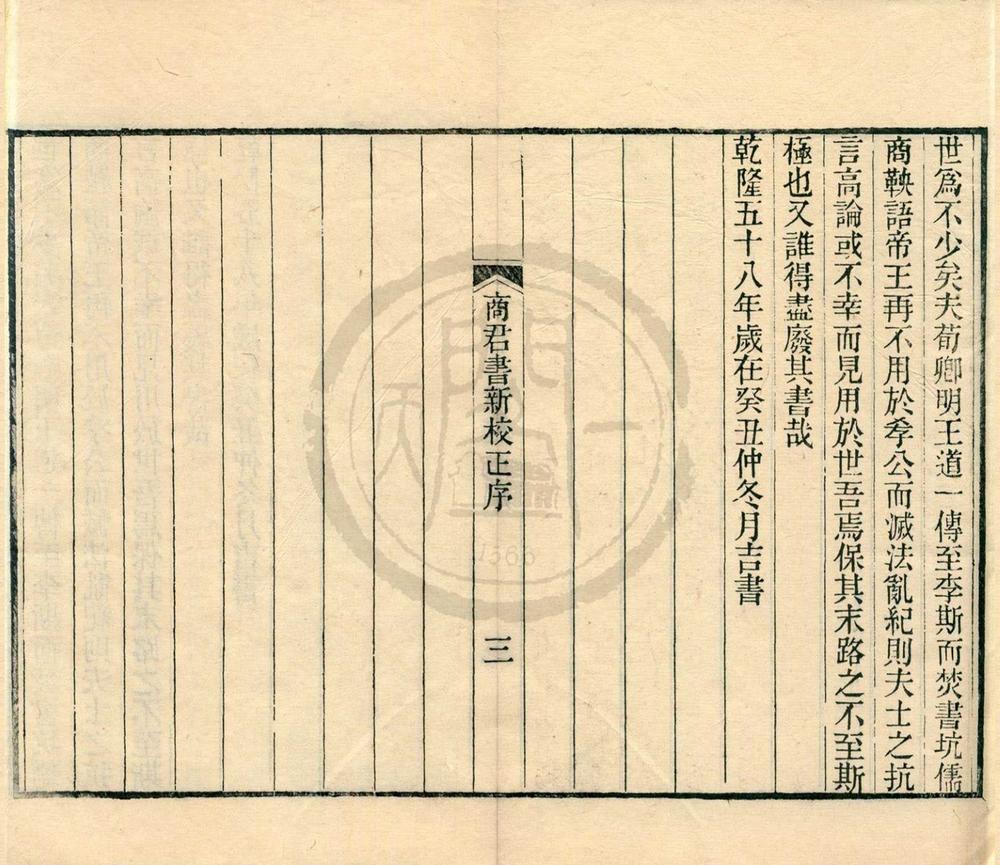 世爲不少矣夫荀卿明王道一傳至李斯而焚書坑儒
商鞅語帝王再不用於孝公而滅法亂紀則夫士之抗
言高論或不幸而見用於世吾焉保其末路之不至斯
極也又誰得盡廢其書哉
乾隆五十八年歲在癸丑仲冬月吉書
商君書新校正序
三
天一閣
1566